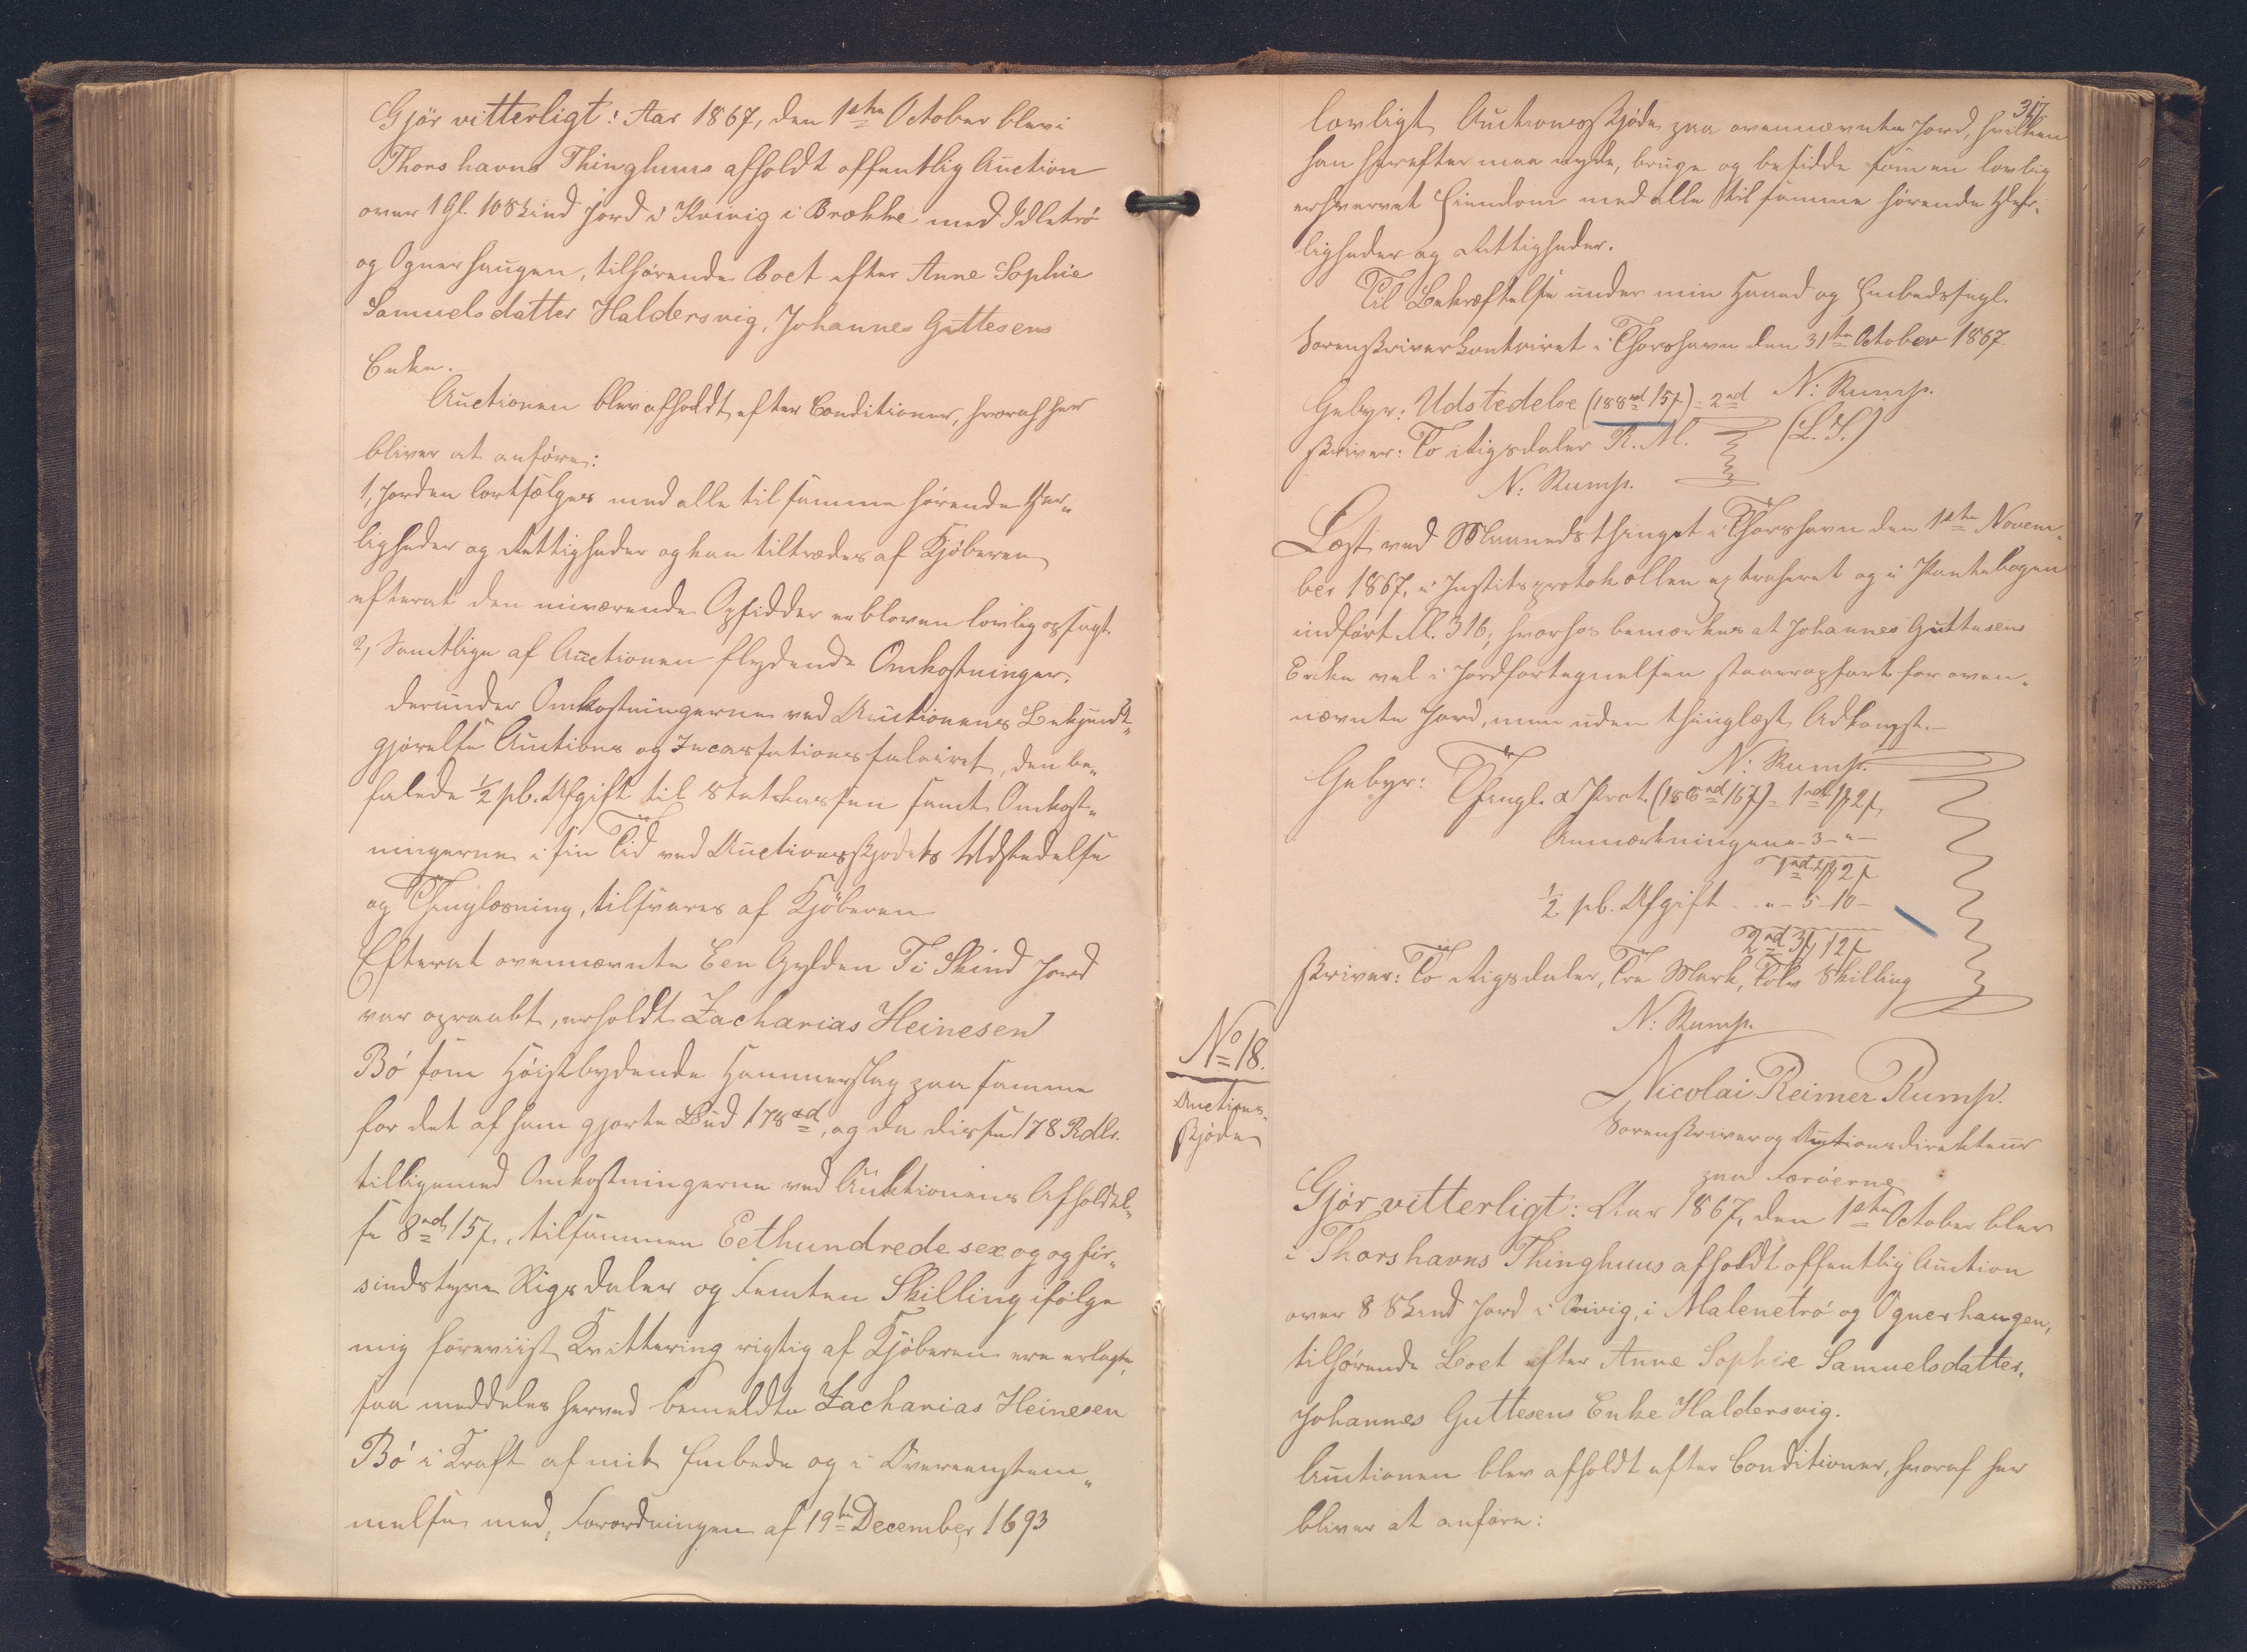 Gjör vitterligt: Aar 1867, den 1ste October blev i
Thorshavns Thinghuus afholdt offentlig Auction
over 1 Gl. 10 Skind Jord i Kvivig i Brekke med Idletrö
og Ognerhaugen, tilhörende Boet efter Anne Sophie
Samuelsdatter Haldersvig, Johannes Guttesens
Enke.
Auctionen blev afholdt efter Conditioner, hvoraf her
bliver at anföre:
1, Jorden bortsælges med alle til samme hörende Her„
ligheder og Rettigheder og kan tiltrædes af Kjöberen
efterat den nuværende Opsidder er bleven lovlig opsagt.
2, Samtlige af Auctionen flydende Omkostninger,
derunder Omkostningerne ved Auctionens Bekjendt„
gjörelse Auctions og Incassationssalairet, den be„
falede ½ pC. Afgift til Statskassen samt Omkost„
ningerne i sin Tid ved Auctionsskjödets Udstedelse
og Thinglæsning, tilsvares af Kjöberen
Efterat ovennævnte Een Gylden Ti Skind Jord
var opraabt, erholdt Zacharias Heinesen
Bö som Höistbydende Hammerslag paa samme
for det af ham gjorte Bud 178 rd, og da disse 178 Rdlr.
tilligemed Omkostningerne ved Auktionens Afholdel„
se 8 rd 15 s, tilsammen Eethundrede sex og og fir„
sindstyve Rigsdaler og Femten Skilling ifölge
mig foreviist Kvittering rigtig af Kjöberen ere erlagte,
saa meddeles herved bemeldte Zacharias Heinesen
Bö i Kraft af mit Embede og i Overeenstem„
melse med Forordningen af 19de December 1693
317
lovligt Auctionsskjöde paa ovennævnte Jord, hvilken
han herefter maa nyde, bruge og besidde som en lovlig
erhvervet Eiendom med alle til samme hörende Her„
ligheder og Rettigheder.
Til Bekræftelse under min Haand og Embedssegl.
Sorenskriverkontoiret i Thorshavn den 31te October 1867.
Gebyr: Udstedelse (188 rd 15 s) = 2 rd N: Rump.
skriver: To Rigsdaler R. M. (L. S.)
N: Rump.
Læst ved Maanedsthinget i Thorshavn den 1ste Novem„
ber 1867, i Justitsprotokollen extraheret og i Pantebogen
indfört fol. 316; hvorhos bemærkes at Johannes Guttesens
Enke vel i Jordfortegnelsen staaer opfört for oven„
nævnte Jord, men uden thinglæst Adkomst.
N: Rump.
Gebyr: Thingl. & Prot.
Anmærkningen - 3 - " -
½ pC. Afgift . . " - 5 - 10 -
2 rd 3 ₻ 12 s
skriver: To Rigsdaler, Tre Mark, Tolv Skilling
N: Rump.
Nicolai Reimer Rump.
Sorenskriver og Auctionsdirekteur
paa Færöerne
No 18.
Auctions„
skjöde
Gjör vitterligt: Aar 1867, den 1ste October blev
i Thorshavns Thinghuus afholdt offentlig Auction
over 8 Skind Jord i Kvivig, i Malenetrö og Ognerhaugen,
tilhörende Boet efter Anne Sophie Samuelsdatter,
Johannes Guttesens Enke Haldersvig.
Auctionen blev afholdt efter Conditioner, hvoraf her
bliver at anföre: